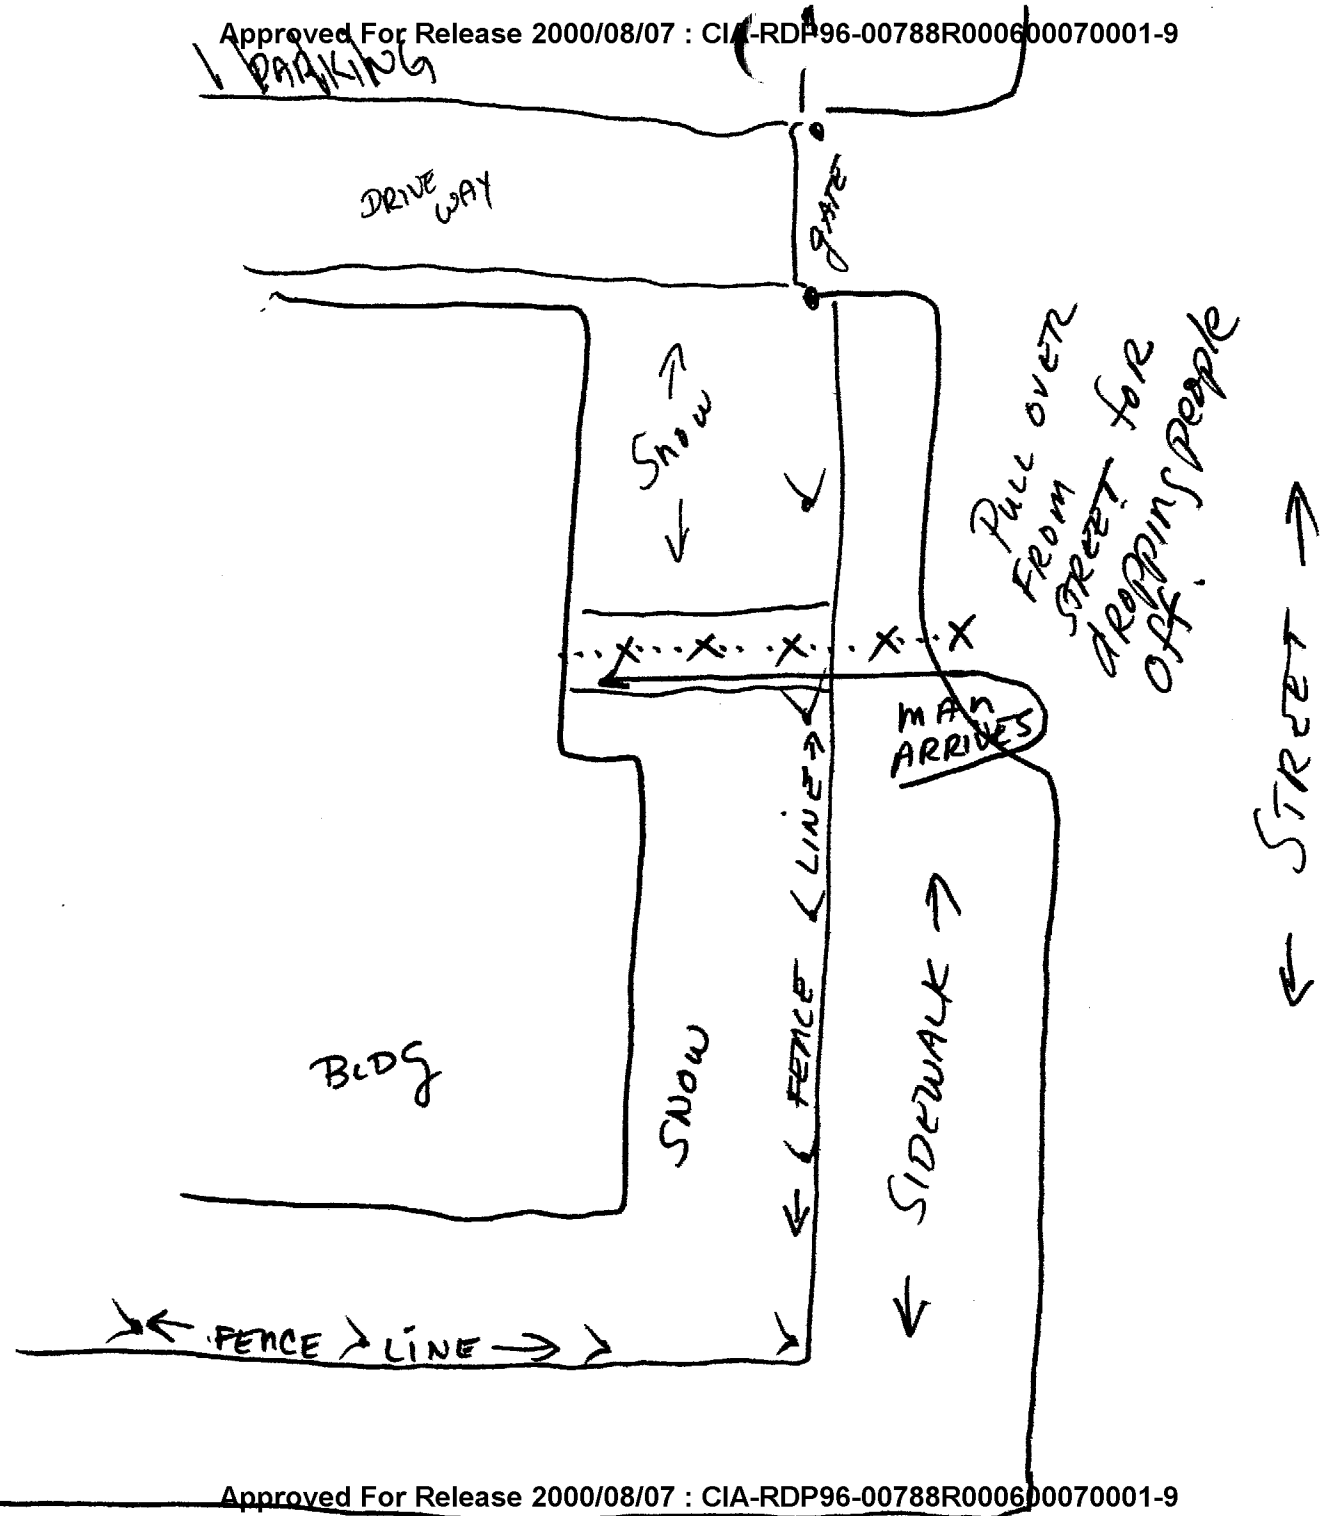 Approved For Release 2000/08/07 : CIA-RDP96-00788R000600070001-9
PARKING
DRIVE
WAY
gATE
Snow
PULL OVER
FROM
STREET for
dROPPINg people
Off.
X X X X X
mAn
ARRIVES
STREET
FENCE LINE
SIDEWALK
BLDG
SNOW
FEnCE LiNE
Approved For Release 2000/08/07 : CIA-RDP96-00788R000600070001-9